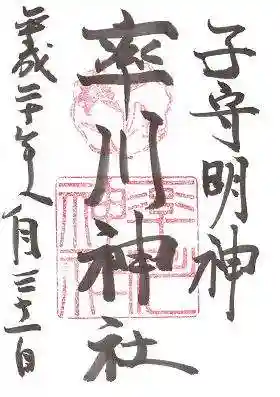 子守明神
率川神社
平成二十年八月三十一日